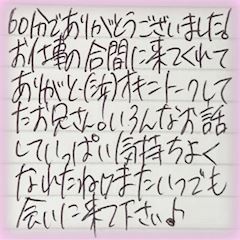 60分でありがとうございました!
お仕事の合間に来てくれて
ありがとー(笑)オキニトークして
たお兄さん。いろんなお話
していっぱい気持ちよく
なれたねけまたいつでも
会いに来て下さい♪